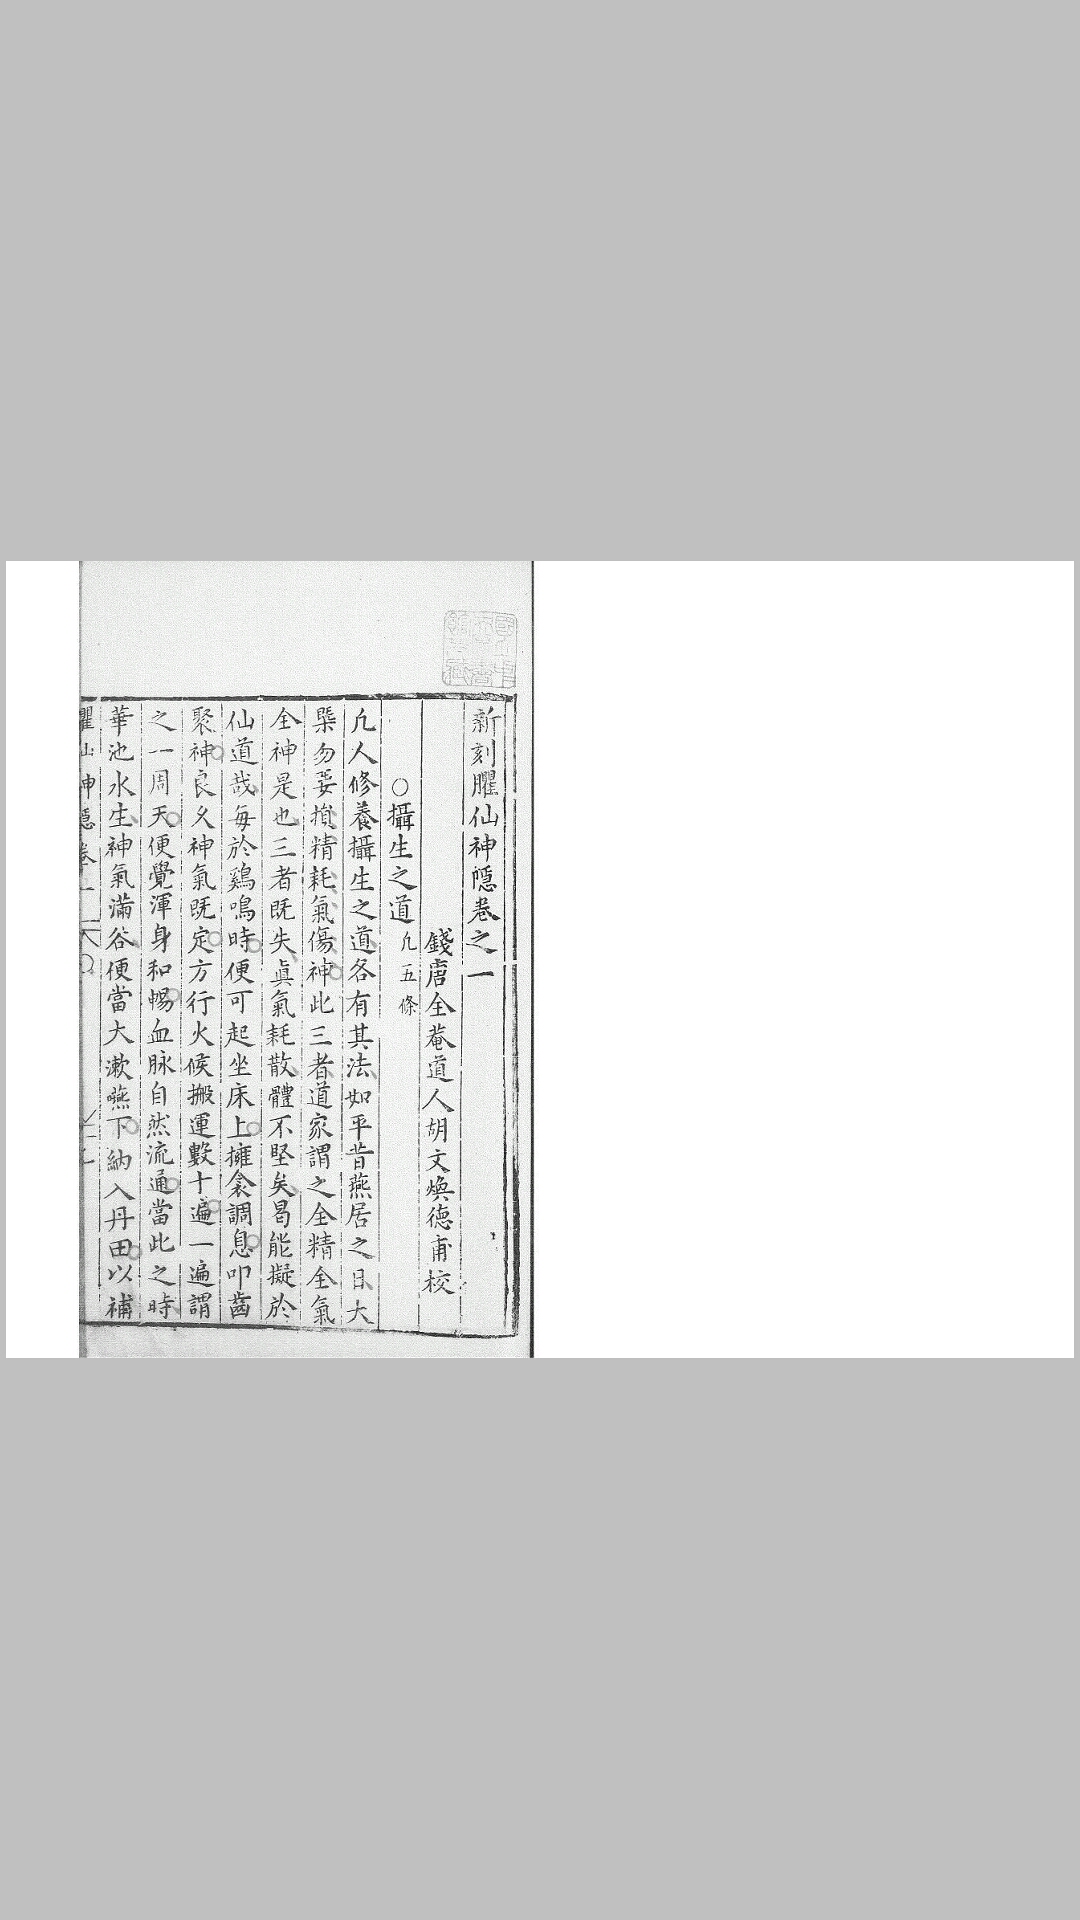 新刻臞仙神隱卷之一
錢唐全菴道人胡文煥德甫校
○攝生之道 凢五條
凢人修養攝生之道各有其法如平昔燕居之日大
槩勿要損精耗氣傷神此三者道家謂之全精全氣
全神是也三者旣失眞氣耗散體不堅矣曷能擬於
仙道哉每於鷄鳴時便可起坐床上擁衾調息叩齒
聚神良久神氣旣定方行火候搬運數十遍一遍謂
之一周天便覺渾身和暢血脉自然流通當此之時
華池水生神氣滿谷便當大漱嚥下納入丹田以補
臞仙神隱卷一